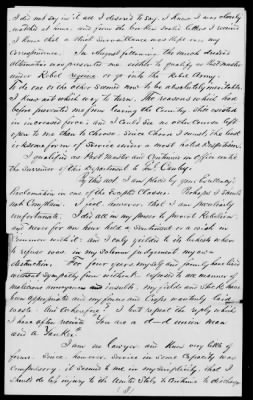 I did not say in it all I desired to say. I knew I was closely
watched at home, and from the broken seals letters I received
I knew that a strict surveillance was kept over my
correspondence. In August following the much dreaded
alternative was presented me either to qualify as Post master
under Rebel regime or go into the Rebel Army.
To do one or the other seemed now to be absolutely inevitable.
I knew not which way to turn. The reasons which had
before prevented me from leaving the Country still existed
in increased force; and I could see no other course left
open to me than to choose. Since choose I must, the least
irksome form of Service under a most hated Despotism.
I qualified as Post Master and continued in office until
the surrender of this Department to Gen. Canby.
By this act I am placed by your Excellency's
Proclamation in one of the Excepted Classes. Perhaps I should
not complain. I feel however, that I am peculiarly
unfortunate. I did all in my power to prevent Rebellion
and never for an hour held a sentiment or a wish in
common with it: and I only yielded to its behests when
to refuse was, in my solemn judgment my own
destruction. For four years myself and family have lived
without sympathy from without exposed to all manner of
malicious annoyances and insults; my fields and stock have
been appropriated and my fences and crops wantonly laid
waste. And wherefore? I but repeat the reply which
I have often received "You are a d—d union man
and a Yankee".
I am no lawyer and know very little of
forms. Since, however, service in some capacity was
compulsory, it seemed to me in my simplicity, that I
should do less injury to the United States to continue to discharge